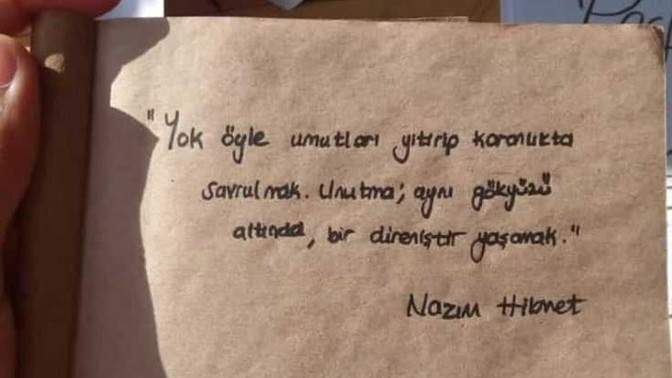 "Yok öyle umutları yitirip karanlıkta
savrulmak. Unutma; aynı gökyüzü
altında, bir direniştir yaşamak."
Nazım Hikmet